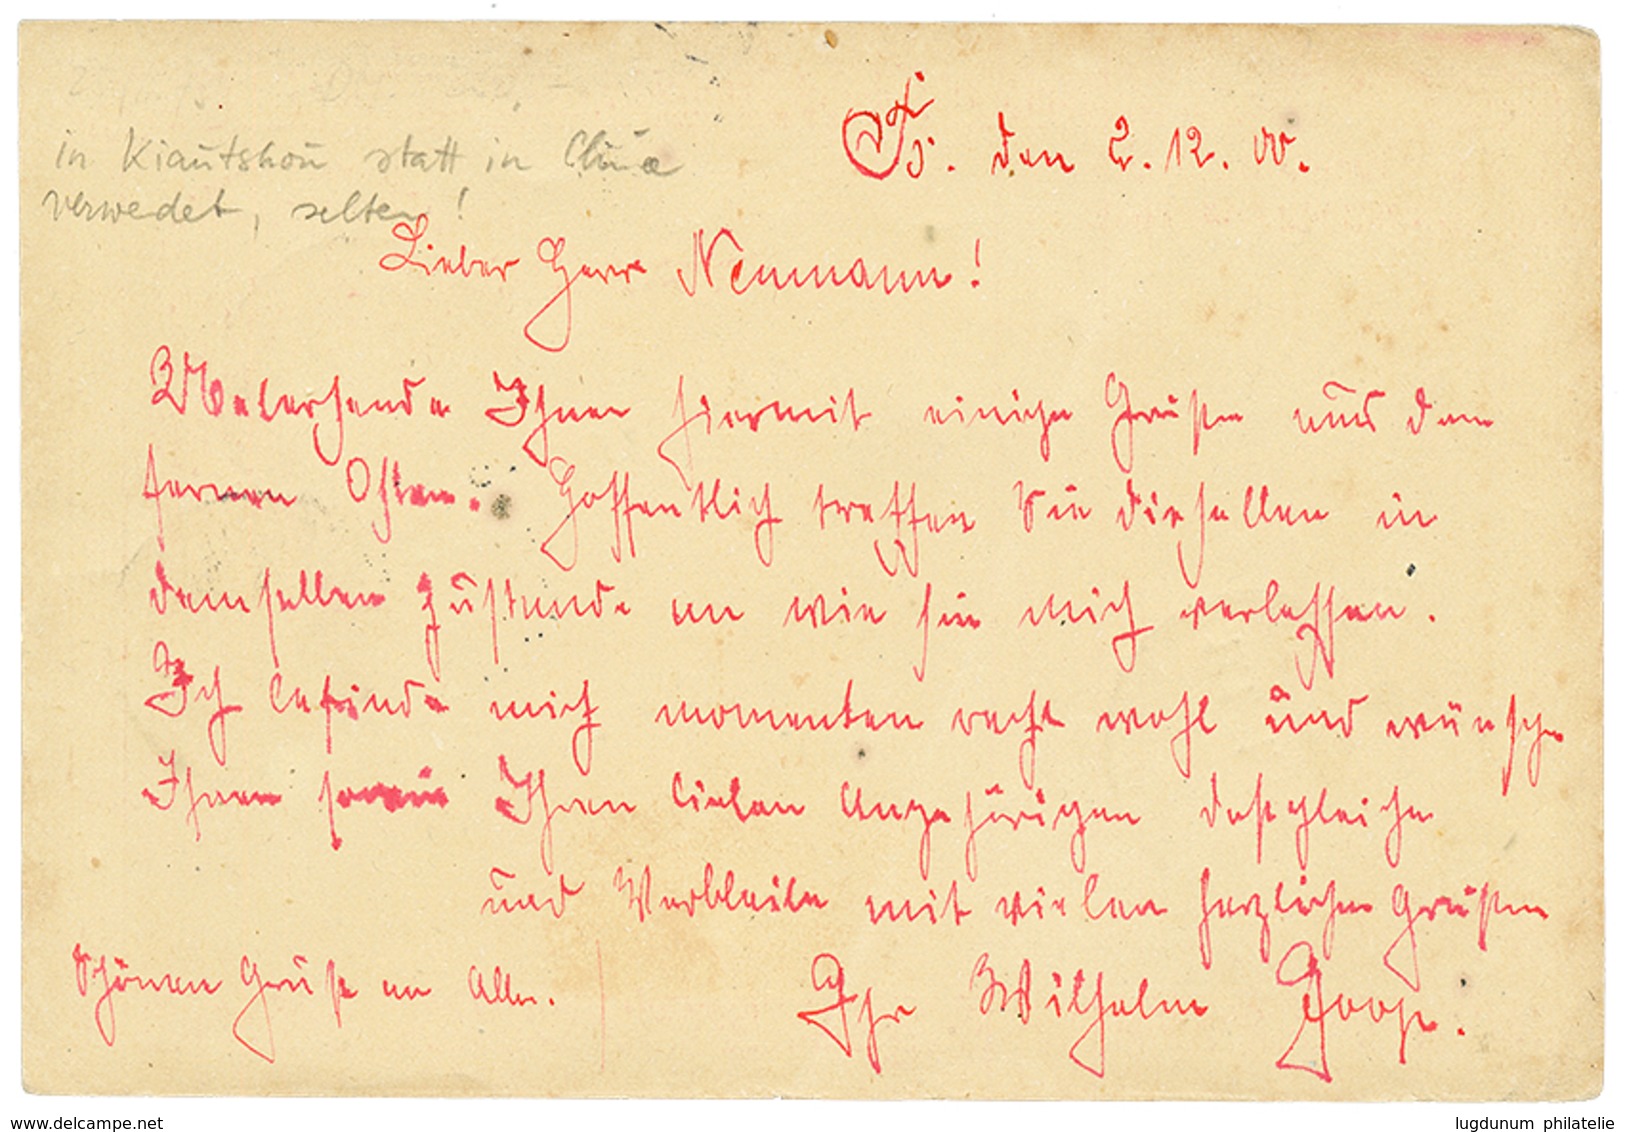 in Kiautshou statt in China
verwedet, selten!
Ts. den 2.12.00.
Lieber Herr Neumann!
Übersende Ihnen hiermit einige Grüße aus dem
fernen Osten. Hoffentlich treffen Sie dieselben in
demselben Zustande an wie sie mich verlassen.
Ich befinde mich momenten recht wohl und wünsche
Ihnen sowie Ihren lieben Angehörigen desgleichen
und Verbleibe mit vielen herzlichen Grüßen
Schönen Gruß an Alle.
Ihr Wilhelm
delcampe.net
lugdunum philatelie